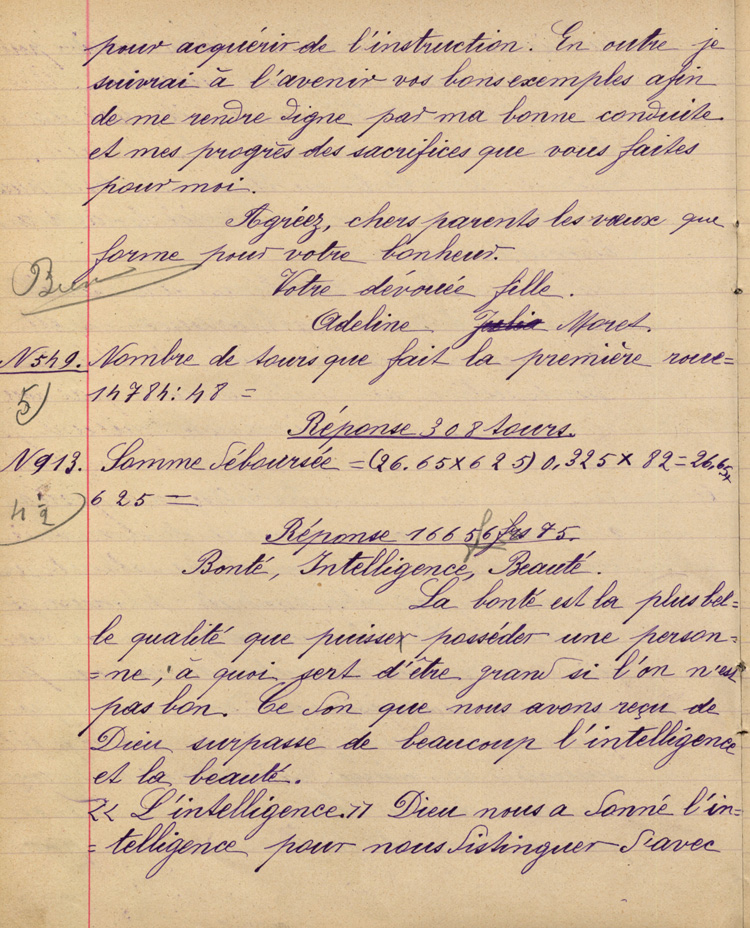 pour acquérir de l'instruction. En outre je
suivrai à l'avenir vos bons exemples afin
de me rendre digne par ma bonne conduite
et mes progrès des sacrifices que vous faites
pour moi.
Agréez, chers parents les vœux que
forme pour votre bonheur.
Bien
Votre dévouée fille.
Adeline Julia Moret.
N 549. Nombre de tours que fait la première roue=
5
14784:48 =
Réponse 308 tours.
N 913. Somme déboursée = (26.65×625) 0,325× 82=26,65×
4 1/2
625 =
Réponse 16656 frs 75.
Bonté, Intelligence, Beauté.
La bonté est la plus bel=
le qualité que puisse posséder une person=
=ne, à quoi sert d'être grand si l'on n'est
pas bon. Ce don que nous avons reçu de
Dieu surpasse de beaucoup l'intelligence
et la beauté.
<< L'intelligence.>> Dieu nous a donné l'in=
=telligence pour nous distinguer d'avec